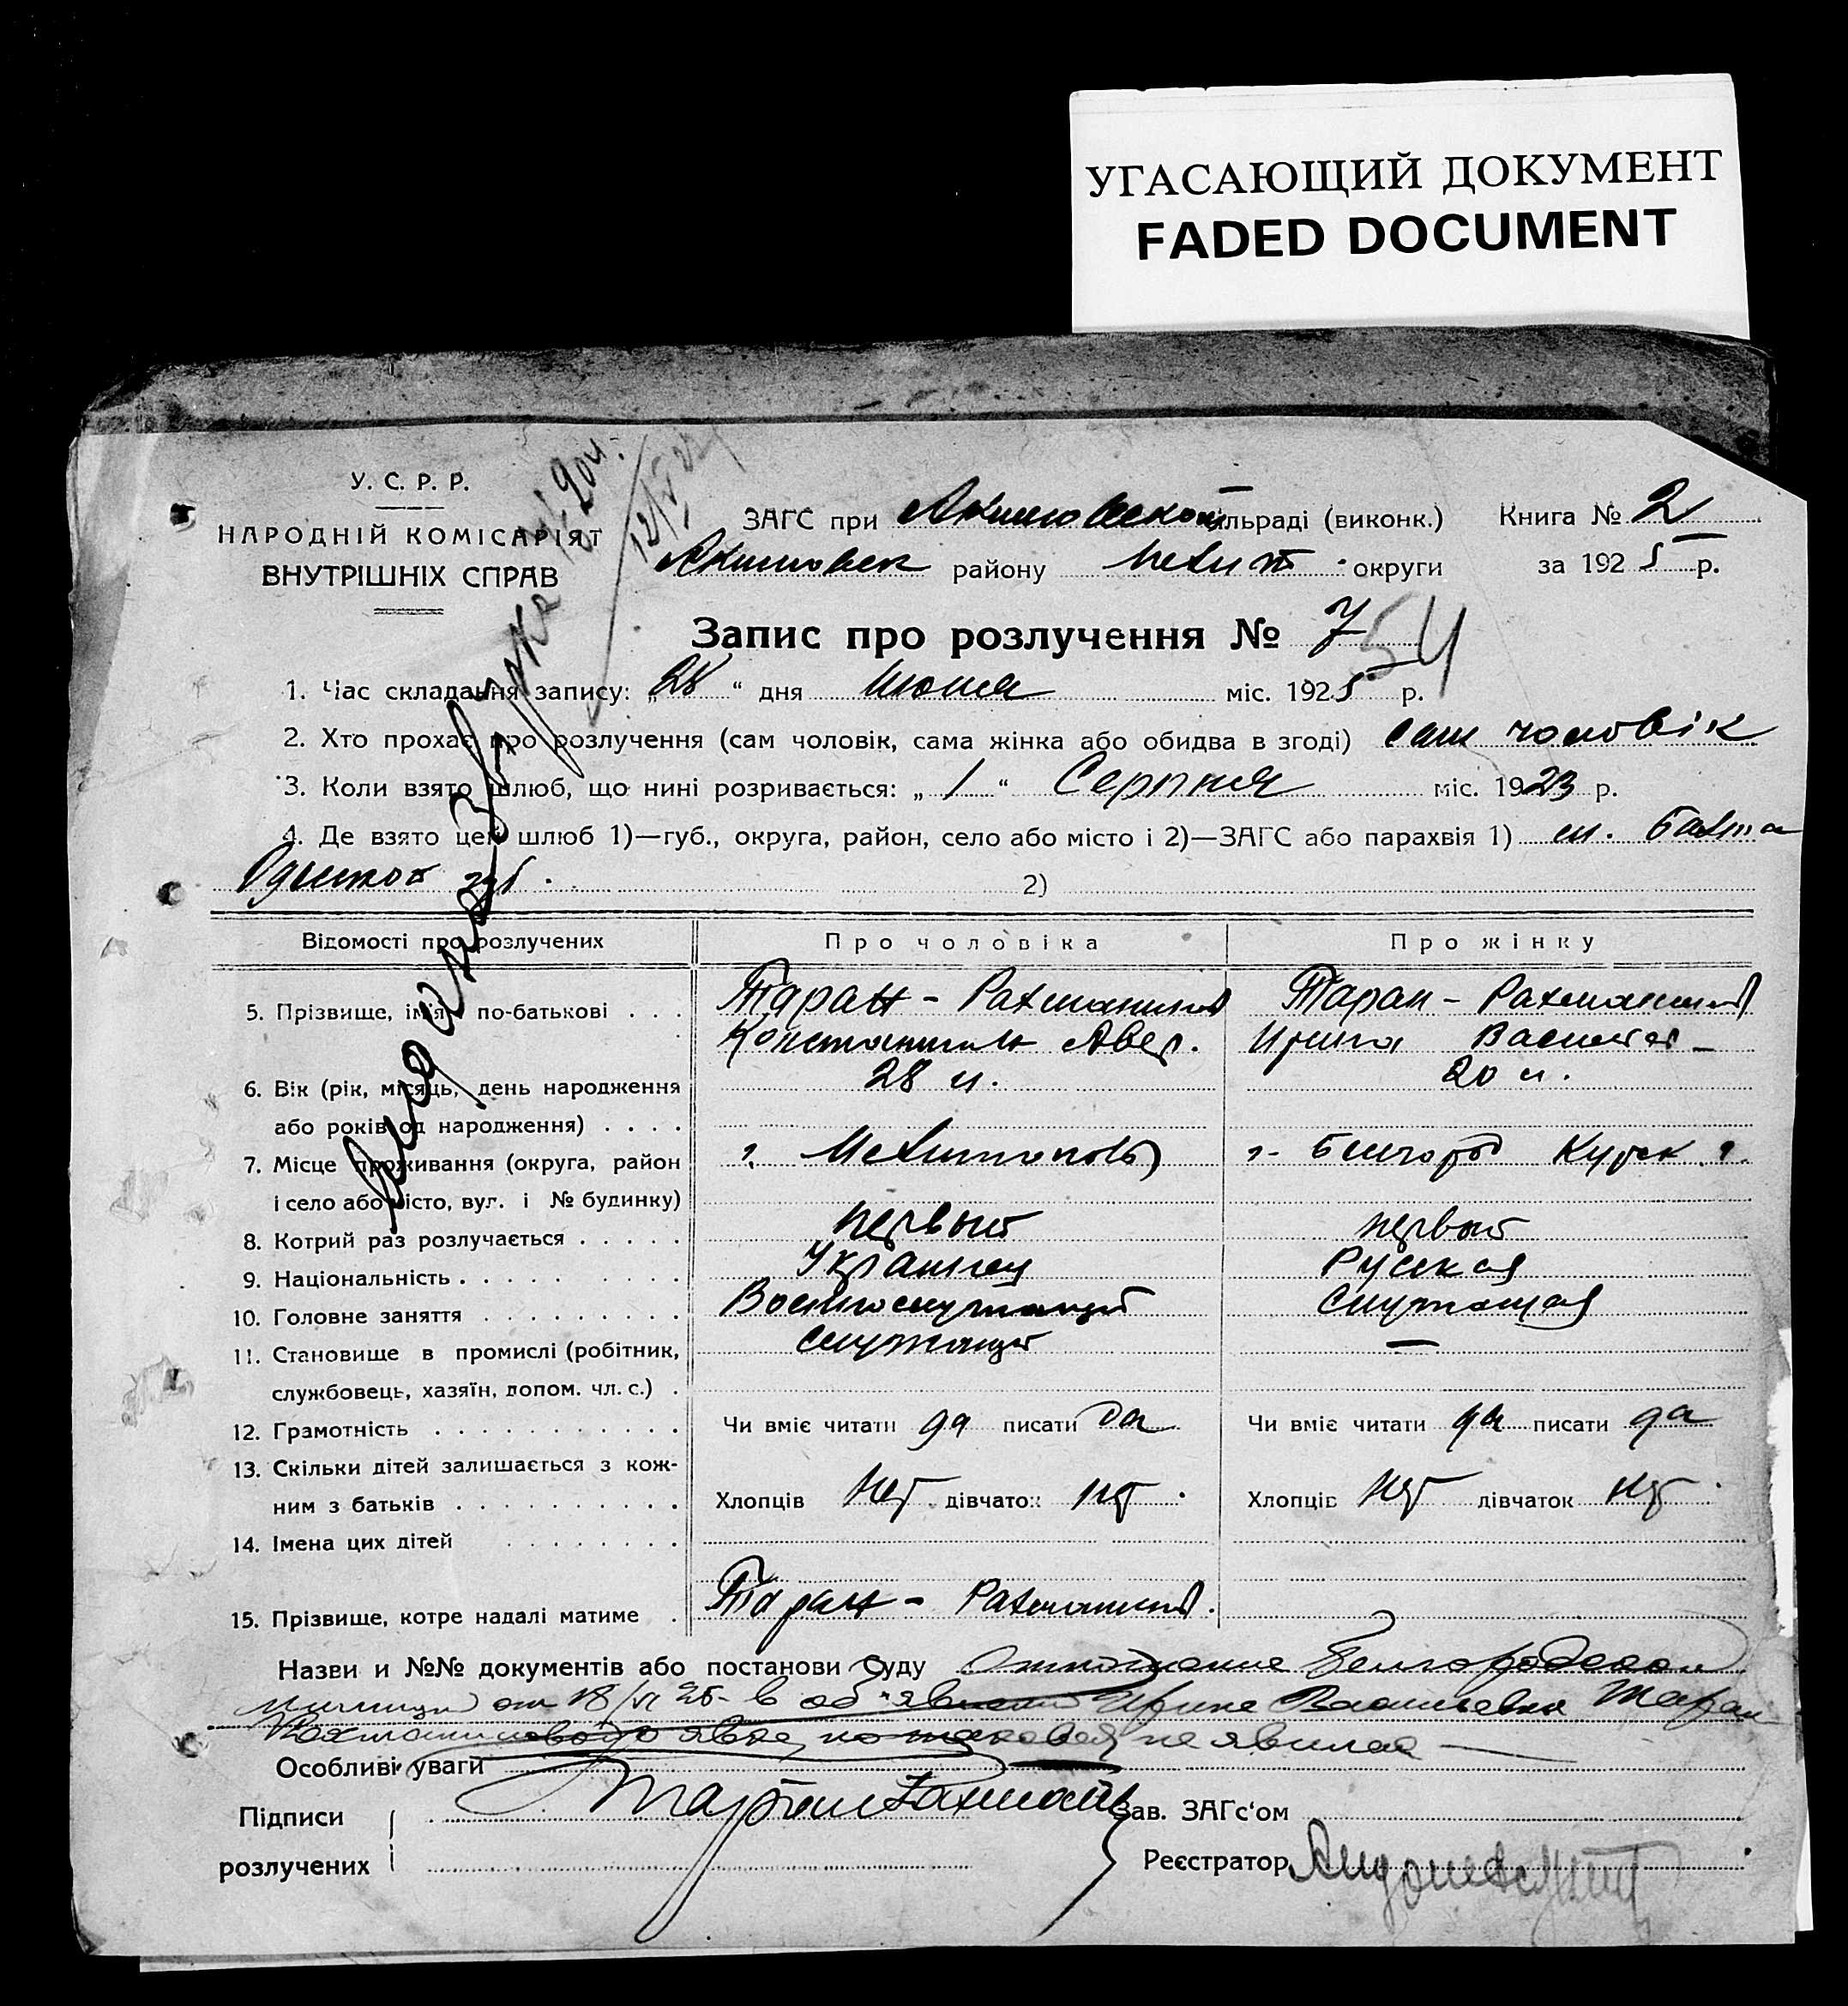 УГАСАЮЩИЙ ДОКУМЕНТ
FADED DOCUMENT
У. С. Р. Р.
НАРОДНІЙ КОМІСАРІЯТ
ВНУТРІШНІХ СПРАВ
ЗАГС при Акимовской сільраді (виконк.) Книга № 2
Акимовск району Мелит округи за 1925 р.
Запис про розлучення № 7 54
1. Час складання запису: „28“ дня Июня міс. 1925 р.
2. Хто прохає про розлучення (сам чоловік, сама жінка або обидва в згоді) сам чоловік
3. Коли взято шлюб, що нині розривається: „1“ Серпня міс. 1923 р.
4. Де взято цей шлюб 1)—губ., округа, район, село або місто і 2)—ЗАГС або парахвія 1) м. Балта
Одеської губ. 2)
Відомості про розлучених Про чоловіка Про жінку
5. Прізвище, ім'я по-батькові . . . Таран - Рахманинов Таран - Рахманинов
Константин Авер. Ирина Васильев-
6. Вік (рік, місяць, день народження 28 л. 20 л.
або років од народження) . . . .
7. Місце проживання (округа, район г. Мелитополь г. Белгород Курск. г.
і село або місто, вуг. і № будинку)
8. Котрий раз розлучається . . . . . первый первый
9. Національність . . . . . . . . . Украинец Русская
10. Головне заняття . . . . . . . . . Военнослужащий Служащая
11. Становище в промислі (робітник, служащий —
службовець, хазяїн, допом. чл. с.) .
12. Грамотність . . . . . . . . . . . Чи вміє читати да писати да Чи вміє читати да писати да
13. Скільки дітей залишається з кож-
ним з батьків . . . . . . . . . . Хлопців нет дівчаток нет . Хлопців нет дівчаток нет .
14. Імена цих дітей . . . . . . . .
15. Прізвище, котре надалі матиме . Таран - Рахманинов.
Назви и №№ документів або постанови Суду Отношение Белгородской
милиции от 18/VI 25- в об'явлении Ирине Васильевне Таран
Рахманиновой о явке, но таковая не явилась —
Особливі уваги
Підписи Таран Рахманин Зав. ЗАГс'ом
розлучених Реєстратор